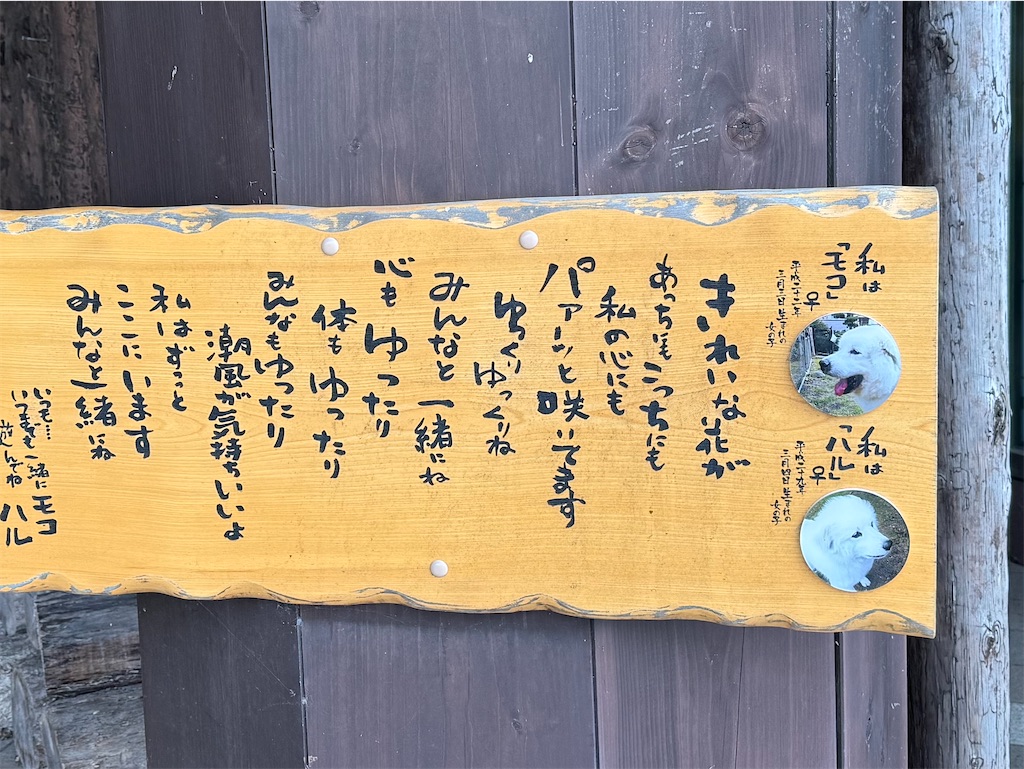 私は
「モコ」♀
平成二十二年
三月三日生まれの
女の子
私は
「ハル」♀
平成二十九年
三月四日生まれの
女の子
きれいな花が
あっちにもこっちにも
私の心にも
パァーッと咲いてます
ゆっくりゆっくりね
みんなと一緒にね
心もゆったり
体もゆったり
みんなもゆったり
潮風が気持ちいいよ
私はずっと
ここにいます
みんなと一緒にね
いつも…
いつまでも一緒に
遊んでね
モコ
ハル